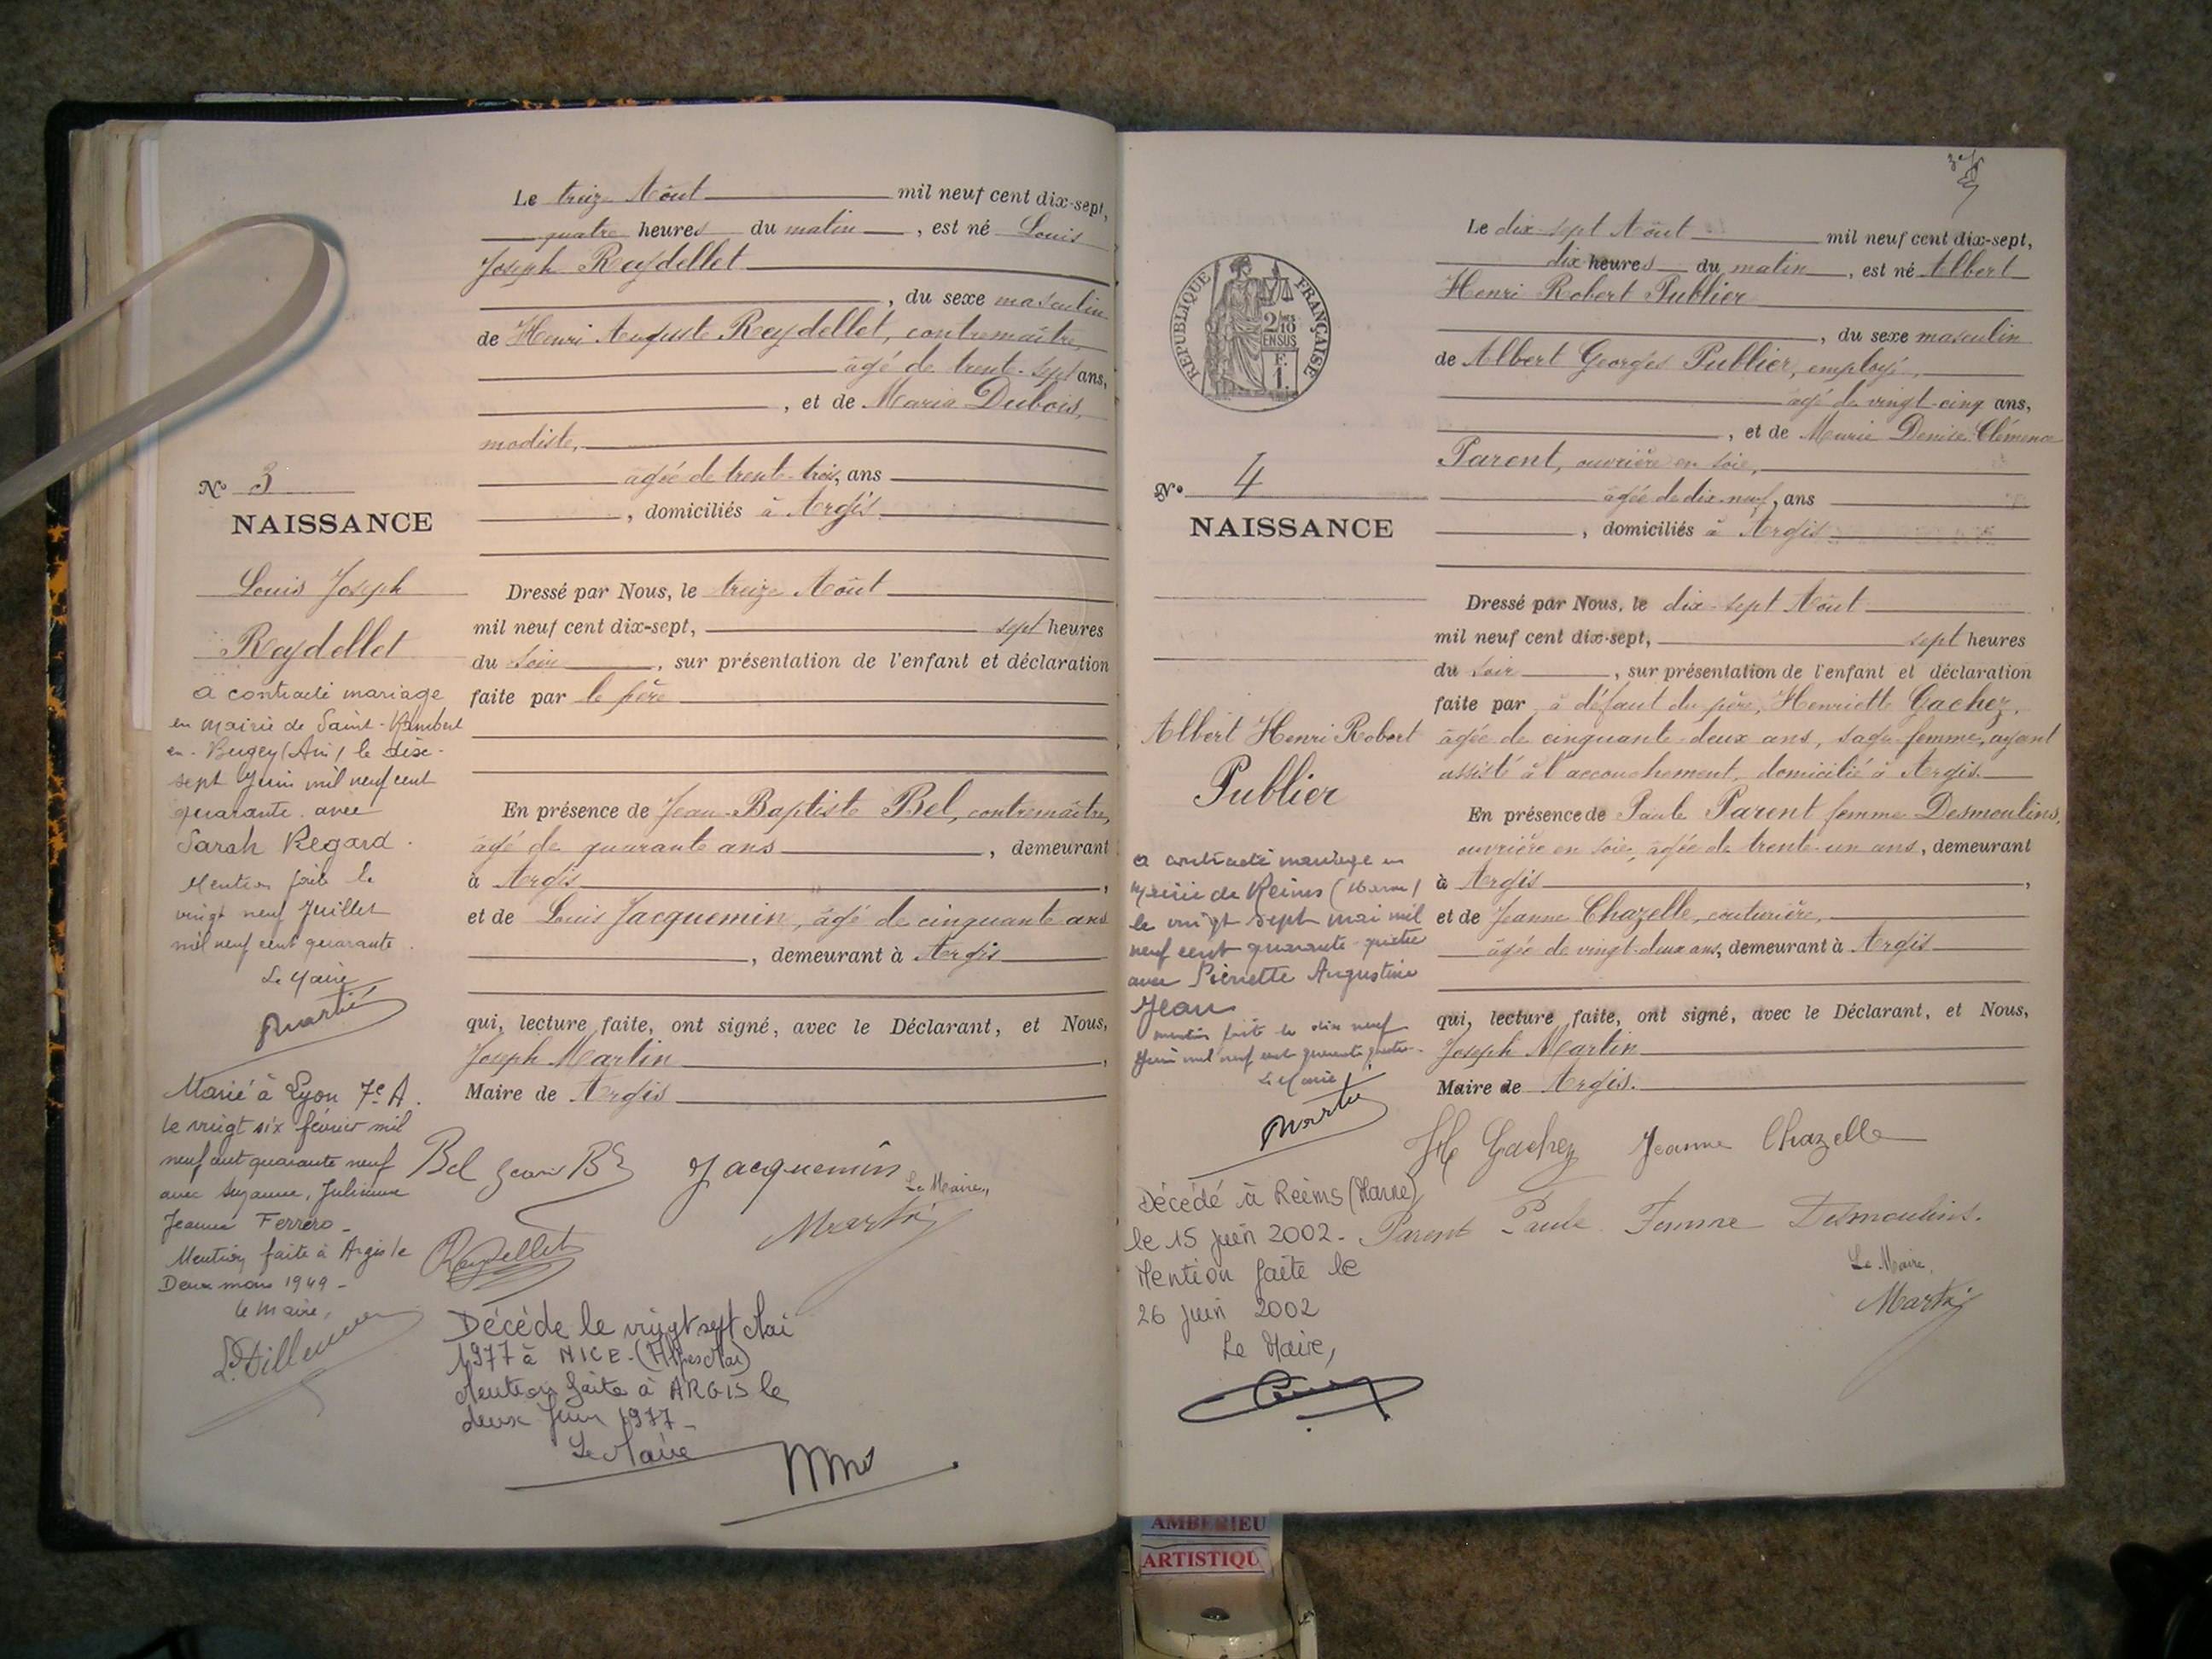 Le treize Août mil neuf cent dix-sept,
quatre heures du matin, est né Louis
Joseph Reydellet
, du sexe masculin
de Henri Auguste Reydellet, contremaître,
âgé de trente-sept ans,
, et de Maria Dubois,
modiste,
âgée de trente-trois, ans
, domiciliés à Argis.
Dressé par Nous, le treize Août
mil neuf cent dix-sept, sept heures
du soir, sur présentation de l'enfant et déclaration
faite par le père
En présence de Jean-Baptiste Bel, contremaître,
âgé de quarante ans, demeurant
à Argis,
et de Louis Jacquemin, âgé de cinquante ans
, demeurant à Argis
qui, lecture faite, ont signé, avec le Déclarant, et Nous,
Joseph Martin,
Maire de Argis
Bel Jean Jacquemin
Le Maire,
Reydellet Martin
Décédé le vingt sept Mai
1977 à NICE-(Alpes Mar)
Mention faite à ARGIS le
deux Juin 1977-
Le Maire
N° 3
NAISSANCE
Louis Joseph
Reydellet
a contracté mariage
en mairie de Saint-Rambert
en-Bugey (Ain) le dix-
sept Juin mil neuf cent
quarante avec
Sarah Regard.
Mention faite le
vingt neuf Juillet
mil neuf cent quarante.
Le Maire
Martin
Marié à Lyon 7e A.
le vingt six février mil
neuf cent quarante neuf
avec Suzanne, Julienne
Jeanne Ferrero-
Mention faite à Argis le
Deux mars 1949-
le maire,
Le dix-sept Août mil neuf cent dix-sept,
dix heures du matin, est né Albert
Henri Robert Publier
, du sexe masculin
de Albert Georges Publier, employé,
âgé de vingt-cinq ans,
, et de Marie Denise Clémence
Parent, ouvrière en soie,
âgée de dix-neuf, ans
, domiciliés à Argis
Dressé par Nous, le dix-sept Août
mil neuf cent dix-sept, sept heures
du soir, sur présentation de l'enfant et déclaration
faite par à défaut du père, Henriette Gachez,
âgée de cinquante-deux ans, sage-femme, ayant
assisté à l'accouchement, domicilié à Argis.
En présence de Paule Parent femme Desmoulins,
ouvrière en soie, âgée de trente-un ans, demeurant
à Argis,
et de Jeanne Chazelle, couturière,
âgée de vingt-deux ans, demeurant à Argis
qui, lecture faite, ont signé, avec le Déclarant, et Nous,
Joseph Martin
Maire de Argis.
H Gachez Jeanne Chazelle
Parent Paule Femme Desmoulins.
Le Maire,
Martin
RÉPUBLIQUE FRANÇAISE
2/10
EN SUS
F.
1.
N° 4
NAISSANCE
Albert Henri Robert
Publier
a contracté mariage en
Mairie de Reims (Marne)
le vingt sept mai mil
neuf cent quarante-quatre
avec Pierrette Augustine
Jean
mention faite le dix neuf
Juin mil neuf cent quarante quatre.
Le Maire
Martin
Décédé à Reims (Marne)
le 15 juin 2002.
Mention faite le
26 juin 2002
Le Maire,
AMBERIEU
ARTISTIQU